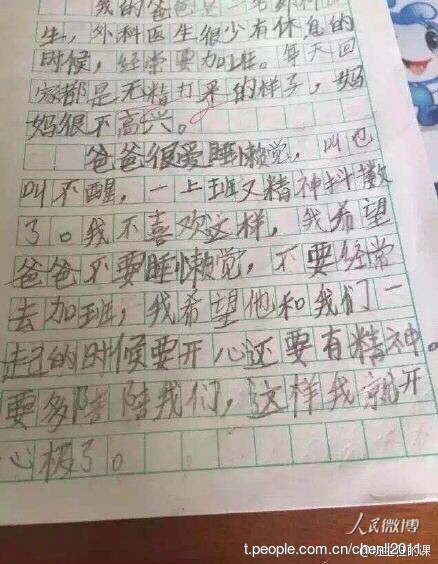 我的爸爸是一名外科医
生，外科医生很少有休息的
时候，经常要加班。每天回
家都是无精打采的样子，妈
妈很不高兴。
爸爸很爱睡懒觉，叫也
叫不醒，一上班又精神抖擞
了。我不喜欢这样，我希望
爸爸不要睡懒觉，不要经常
去加班，我希望他和我们一
起的时候要开心还要有精神。
要多陪陪我们，这样我就开
心极了。
人民微博
t.people.com.cn/chenli2011